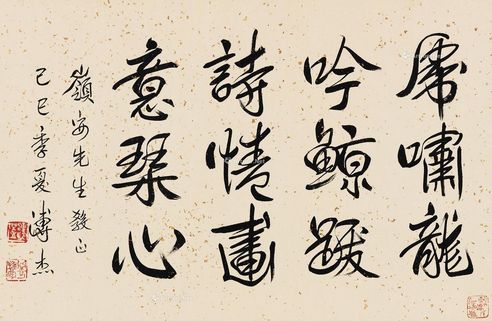 虎嘯龍
吟鯨跋
詩情畫
意琴心
嶺安先生教正
己巳季夏 溥杰